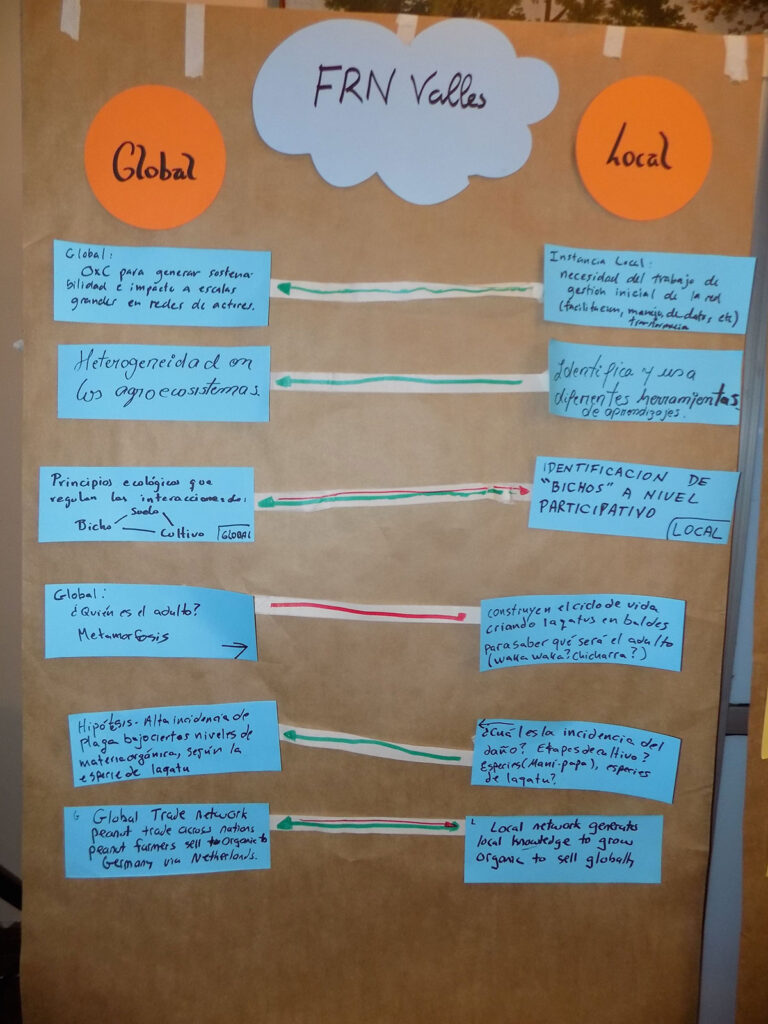 FRN Valles
Global
Local
Global:
OxC para generar sostena-
bilidad e impacto a escalas
grandes en redes de actores.
Instancia Local:
necesidad del trabajo de
gestión inicial de la red
(facilitacion, manejo de datos, etc)
transferencia
Heterogeneidad en
los agroecosistemas.
Identifica y usa
diferentes herramientas
de aprendizajes.
Principios ecológicos que
regulan las interacciones de:
Suelo
Bicho Cultivo GLOBAL
IDENTIFICACION DE
"BICHOS" A NIVEL
PARTICIPATIVO
LOCAL
Global:
¿Quién es el adulto?
Metamorfosis
construyen el ciclo de vida
criando lagatus en baldes
para saber qué será el adulto
(waka waka? chicharra?)
Hipótesis - Alta incidencia de
plaga bajo ciertos niveles de
materia orgánica, según la
especie de lagatu
¿Cuál es la incidencia del
daño? Etapas de cultivo?
Especies (Maní-papa), especies
de lagatu?
G Global Trade network
peanut trade across nations
peanut farmers sell organic to
Germany via Netherlands.
L Local network generates
local knowledge to grow
organic to sell globally